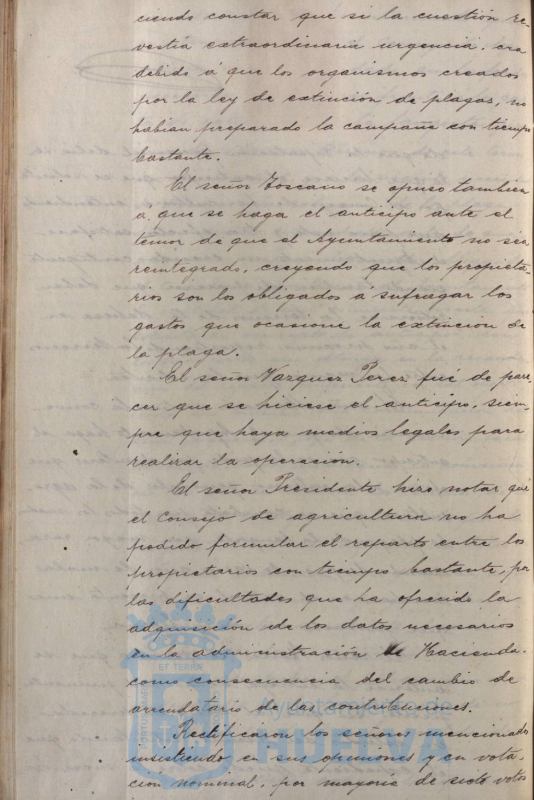 ciendo constar que si la cuestión re-
vestía extraordinaria urgencia, era
debido á que los organismos creados
por la ley de extinción de plagas, no
habian preparado la campaña con tiempo
bastante.
El señor Toscano se opuso tambien
a que se haga el anticipo ante el
temor de que el Ayuntamiento no sea
reintegrado, creyendo que los propieta-
rios son los obligados á sufragar los
gastos que ocasione la extinción de
la plaga.
El señor Vazquez Perez fué de pare-
cer que se hiciese el anticipo, siem-
pre que haya medios legales para
realizar la operación.
El señor Presidente hizo notar que
el Consejo de agricultura no ha
podido formular el reparto entre los
propietarios con tiempo bastante, por
las dificultades que ha ofrecido la
adquisición de los datos necesarios
en la administración de Hacienda
como consecuencia del cambio de
arrendatario de las contribuciones.
Rectificaron los señores mencionados
insistiendo en sus opiniones y en vota-
ción nominal, por mayoría de siete votos
ET TERRÆ
Ayuntamiento de
HUELVA